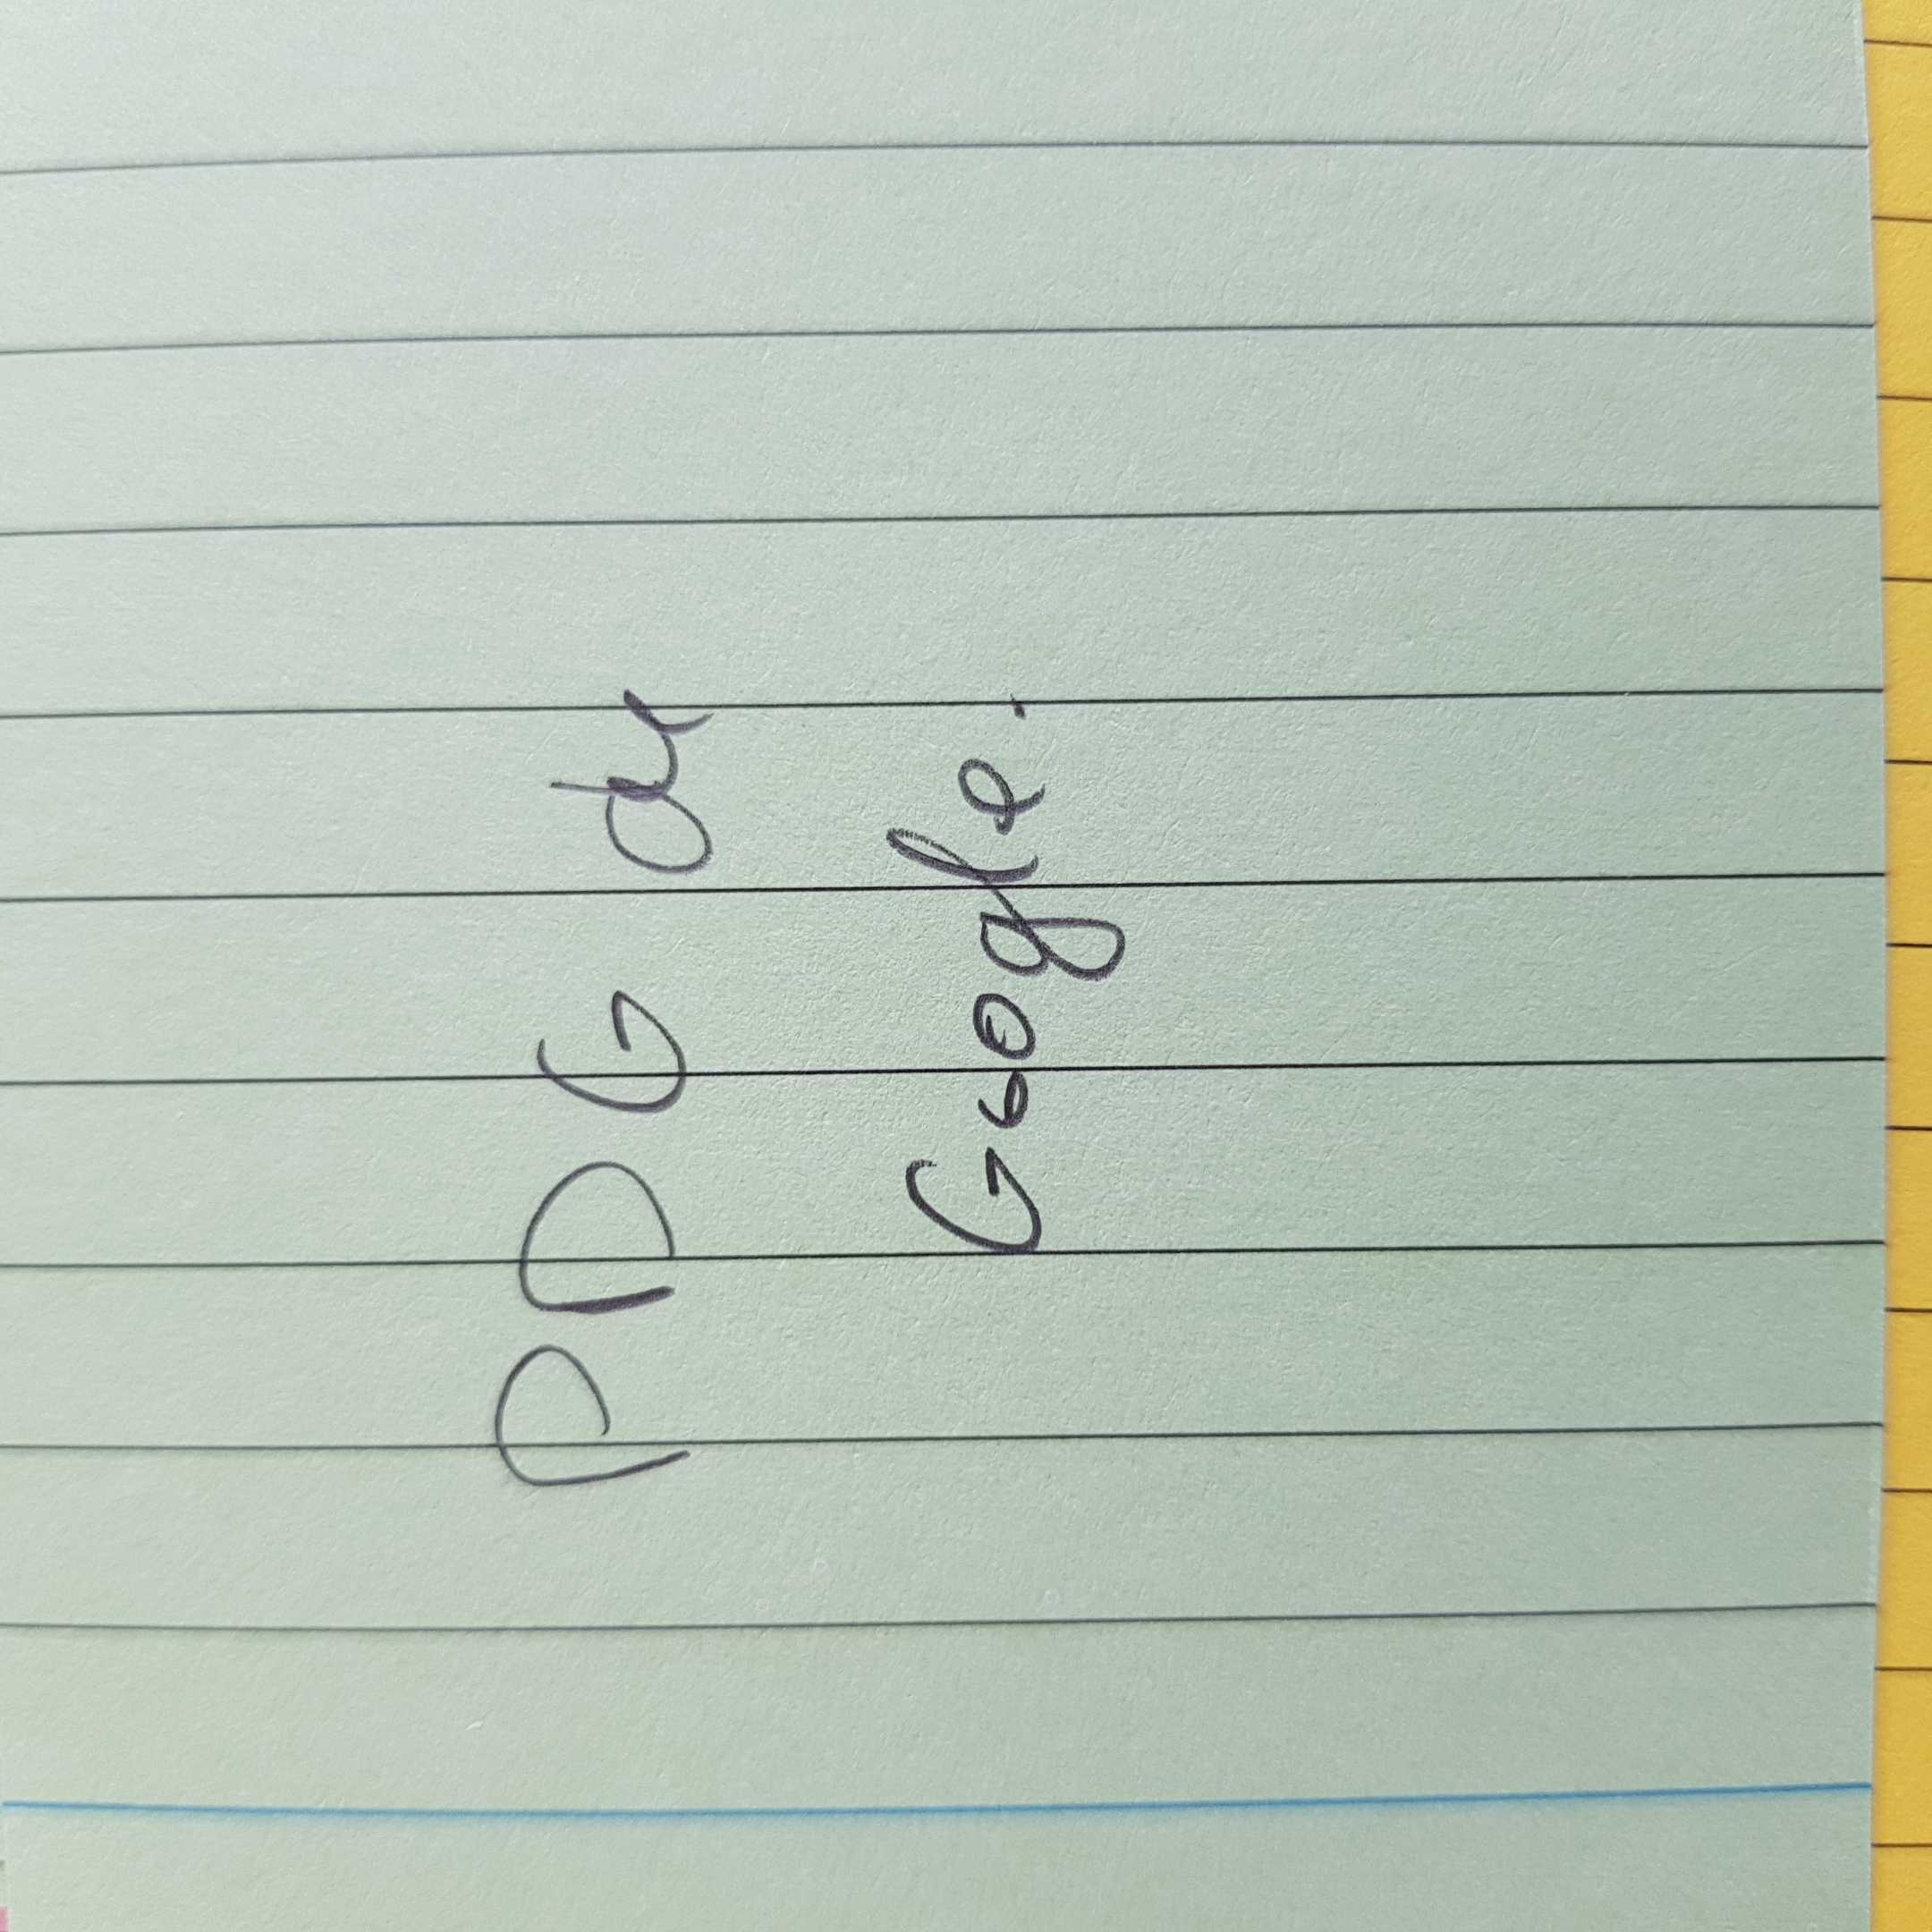 PDG du
Google.